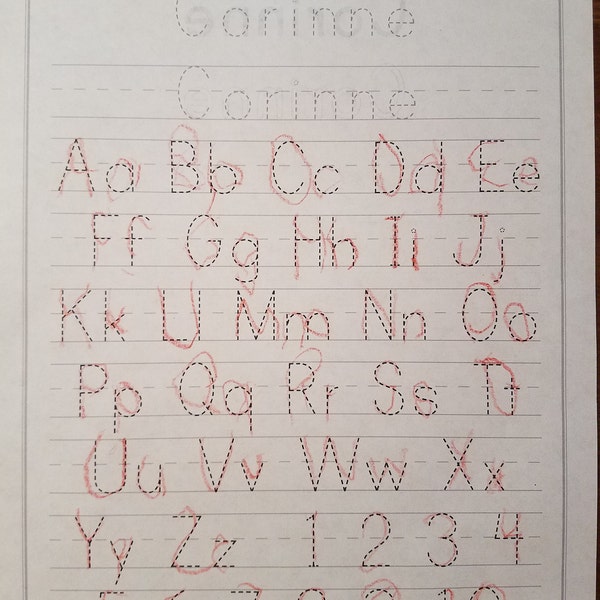 Corinne
Corinne
Aa Bb Cc Dd Ee
Ff Gg Hh Ii Jj
Kk Ll Mm Nn Oo
Pp Qq Rr Ss Tt
Uu Vv Ww Xx
Yy Zz 1 2 3 4
5 6 7 8 9 10